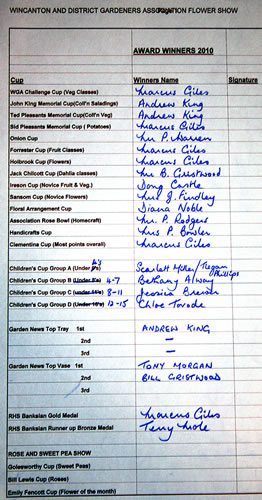 WINCANTON AND DISTRICT GARDENERS ASSOCIATION FLOWER SHOW
AWARD WINNERS 2010
Cup Winners Name Signature
WGA Challenge Cup (Veg Classes) Marcus Giles
John King Memorial Cup(Coll'n Saladings) Andrew King
Ted Pleasants Memorial Cup(Coll'n Veg) Andrew King
Sid Pleasants Memorial Cup ( Potatoes) Marcus Giles
Onion Cup Mr P.
Forrester Cup (Fruit Classes) Marcus Giles
Holbrook Cup (Flowers) Marcus Giles
Jack Chilcott Cup (Dahlia classes) Mr B. Gristwood
Ireson Cup (Novice Fruit & Veg.) Doug Castle
Sansom Cup (Novice Flowers) Mrs J. Findley
Floral Arrangement Cup Diana Noble
Association Rose Bowl (Homecraft) Mr. P. Rodgers
Handicrafts Cup Mrs P. Bowler
Clementina Cup (Most points overall) Marcus Giles
Children's Cup Group A (Under 4's) Scarlett / Tegan Phillips
Children's Cup Group B (Under 8's) 4-7 Bethany Alway
Children's Cup Group C (under 11's) 8-11 Jessica
Children's Cup Group D (Under 16's) 12-15 Chloe Torode
Garden News Top Tray 1st ANDREW KING
2nd –
3rd –
Garden News Top Vase 1st TONY MORGAN
2nd BILL GRISTWOOD
3rd
RHS Banksian Gold Medal Marcus Giles
RHS Banksian Runner up Bronze Medal Terry Mole
ROSE AND SWEET PEA SHOW
Golesworthy Cup (Sweet Peas)
Bill Lewis Cup (Roses)
Emily Fencott Cup (Flower of the month)